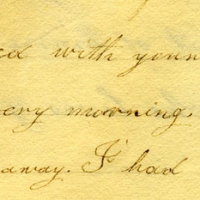 ed with your
ery morning.
away. I had